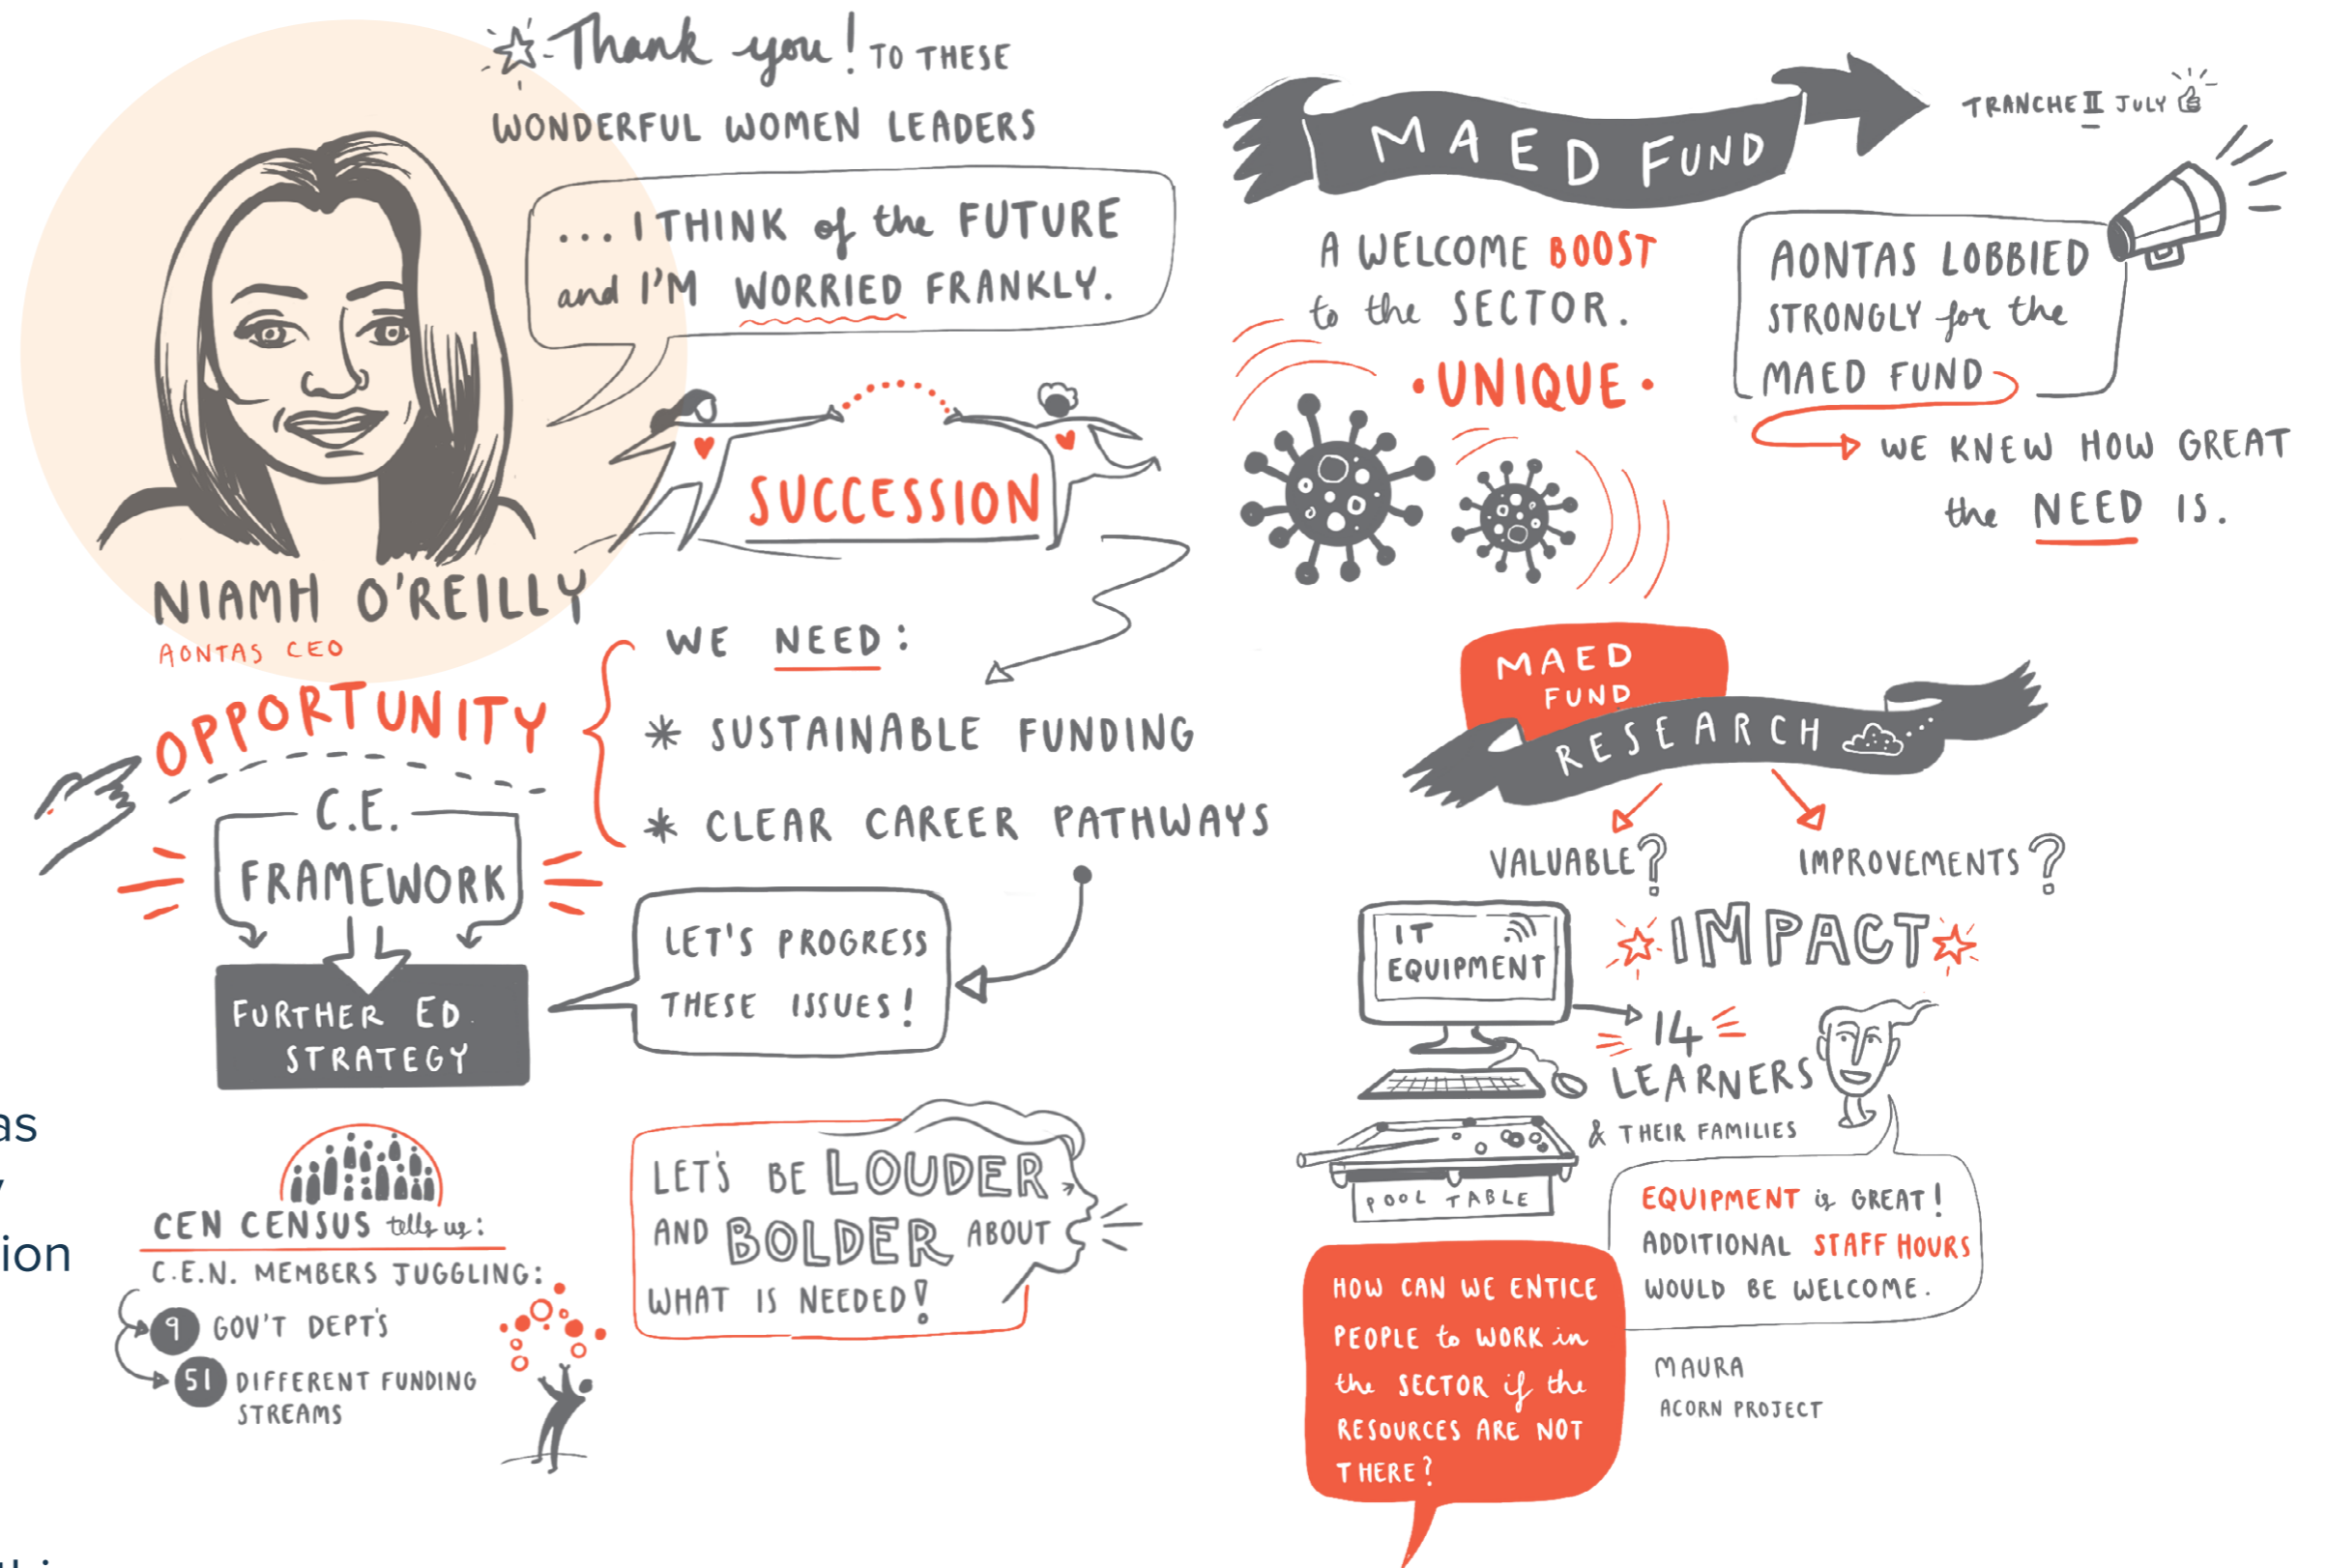 Thank you! TO THESE
WONDERFUL WOMEN LEADERS
... I THINK of the FUTURE
and I'M WORRIED FRANKLY.
SUCCESSION
NIAMH O'REILLY
AONTAS CEO
WE NEED:
* SUSTAINABLE FUNDING
* CLEAR CAREER PATHWAYS
OPPORTUNITY
C.E.
FRAMEWORK
FURTHER ED.
STRATEGY
LET'S PROGRESS
THESE ISSUES!
as
ion
CEN CENSUS tells us:
C.E.N. MEMBERS JUGGLING:
9 GOV'T DEPT'S
51 DIFFERENT FUNDING
STREAMS
LET'S BE LOUDER
AND BOLDER ABOUT
WHAT IS NEEDED!
MAED FUND
TRANCHE II JULY
A WELCOME BOOST
to the SECTOR.
• UNIQUE •
AONTAS LOBBIED
STRONGLY for the
MAED FUND
WE KNEW HOW GREAT
the NEED IS.
MAED
FUND
RESEARCH
VALUABLE?
IMPROVEMENTS?
IMPACT
IT
EQUIPMENT
14
LEARNERS
& THEIR FAMILIES
POOL TABLE
EQUIPMENT is GREAT!
ADDITIONAL STAFF HOURS
WOULD BE WELCOME.
MAURA
ACORN PROJECT
HOW CAN WE ENTICE
PEOPLE to WORK in
the SECTOR if the
RESOURCES ARE NOT
THERE?